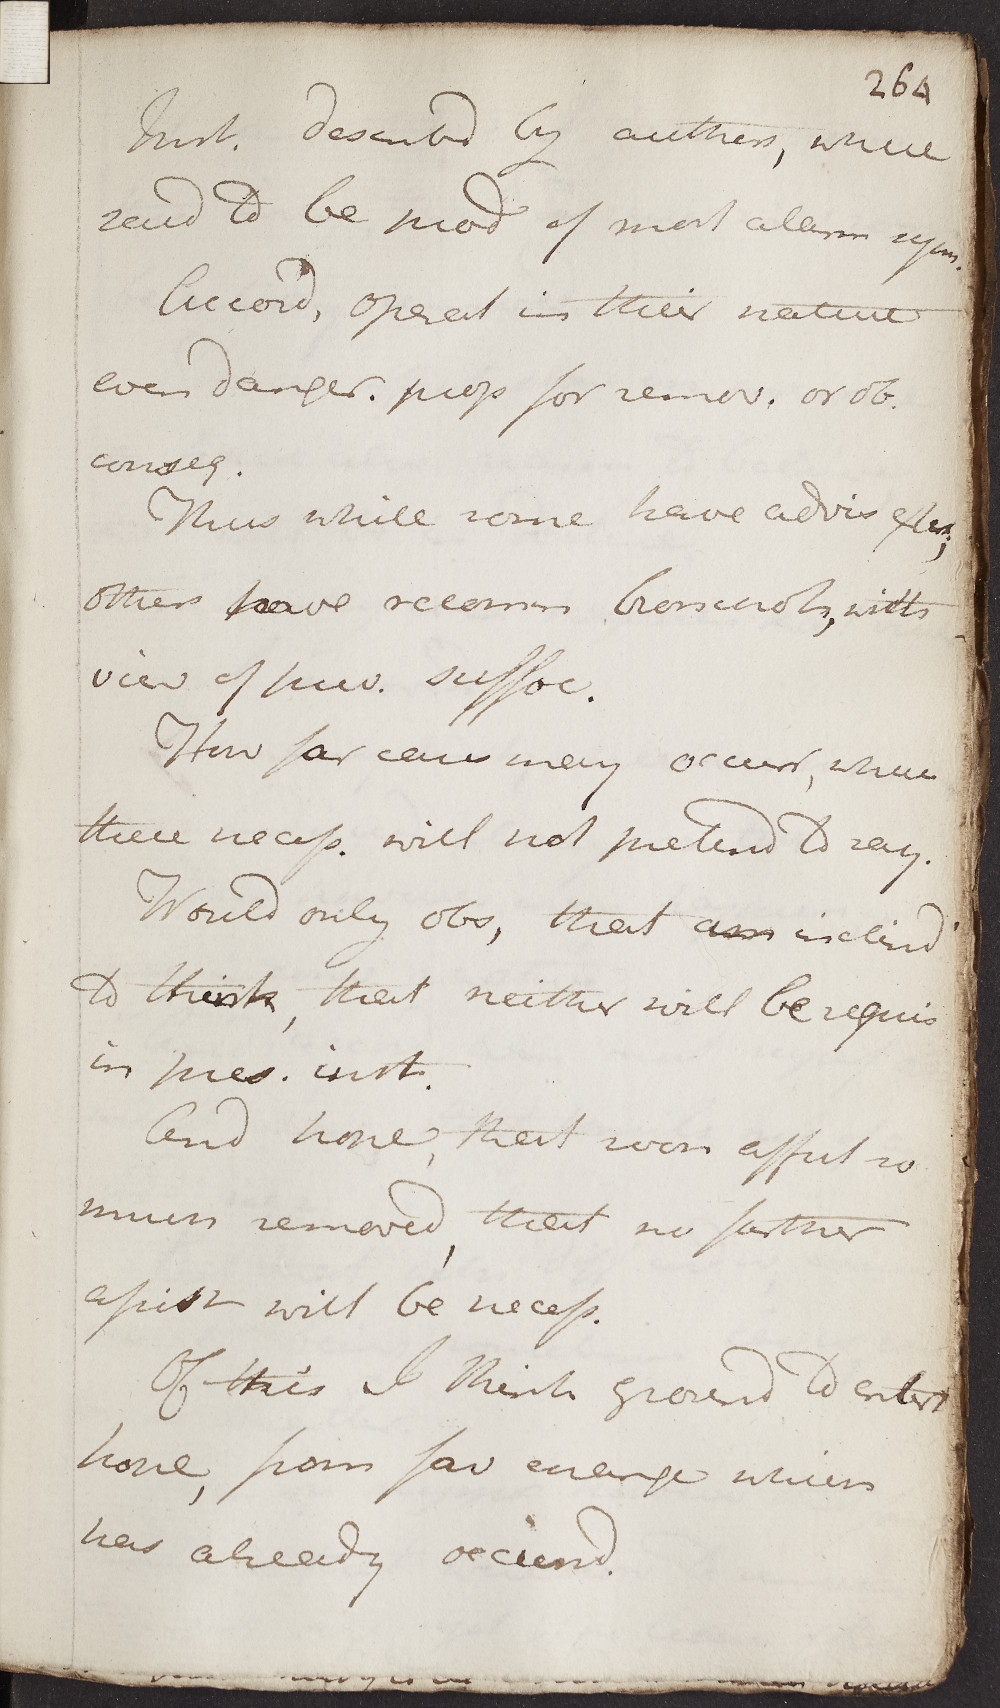 264
Inst. describd by authors, where
said to be prod of most alarm sym.
Accord, operat in their nature
even danger. prop for remov. or ob.
conseq.
Thus while some have advis
others have recomm bronchot, with
view of prev. suffoc.
How far cases may occur, where
these necess. will not pretend to say.
Would only obs, that am inclind
to think, that neither will be requis
in pres. inst.
And hope, that soon affect so
much removed, that no farther
assist will be necess.
Of this I think ground to entert
hope, from fav change which
has already occurd.